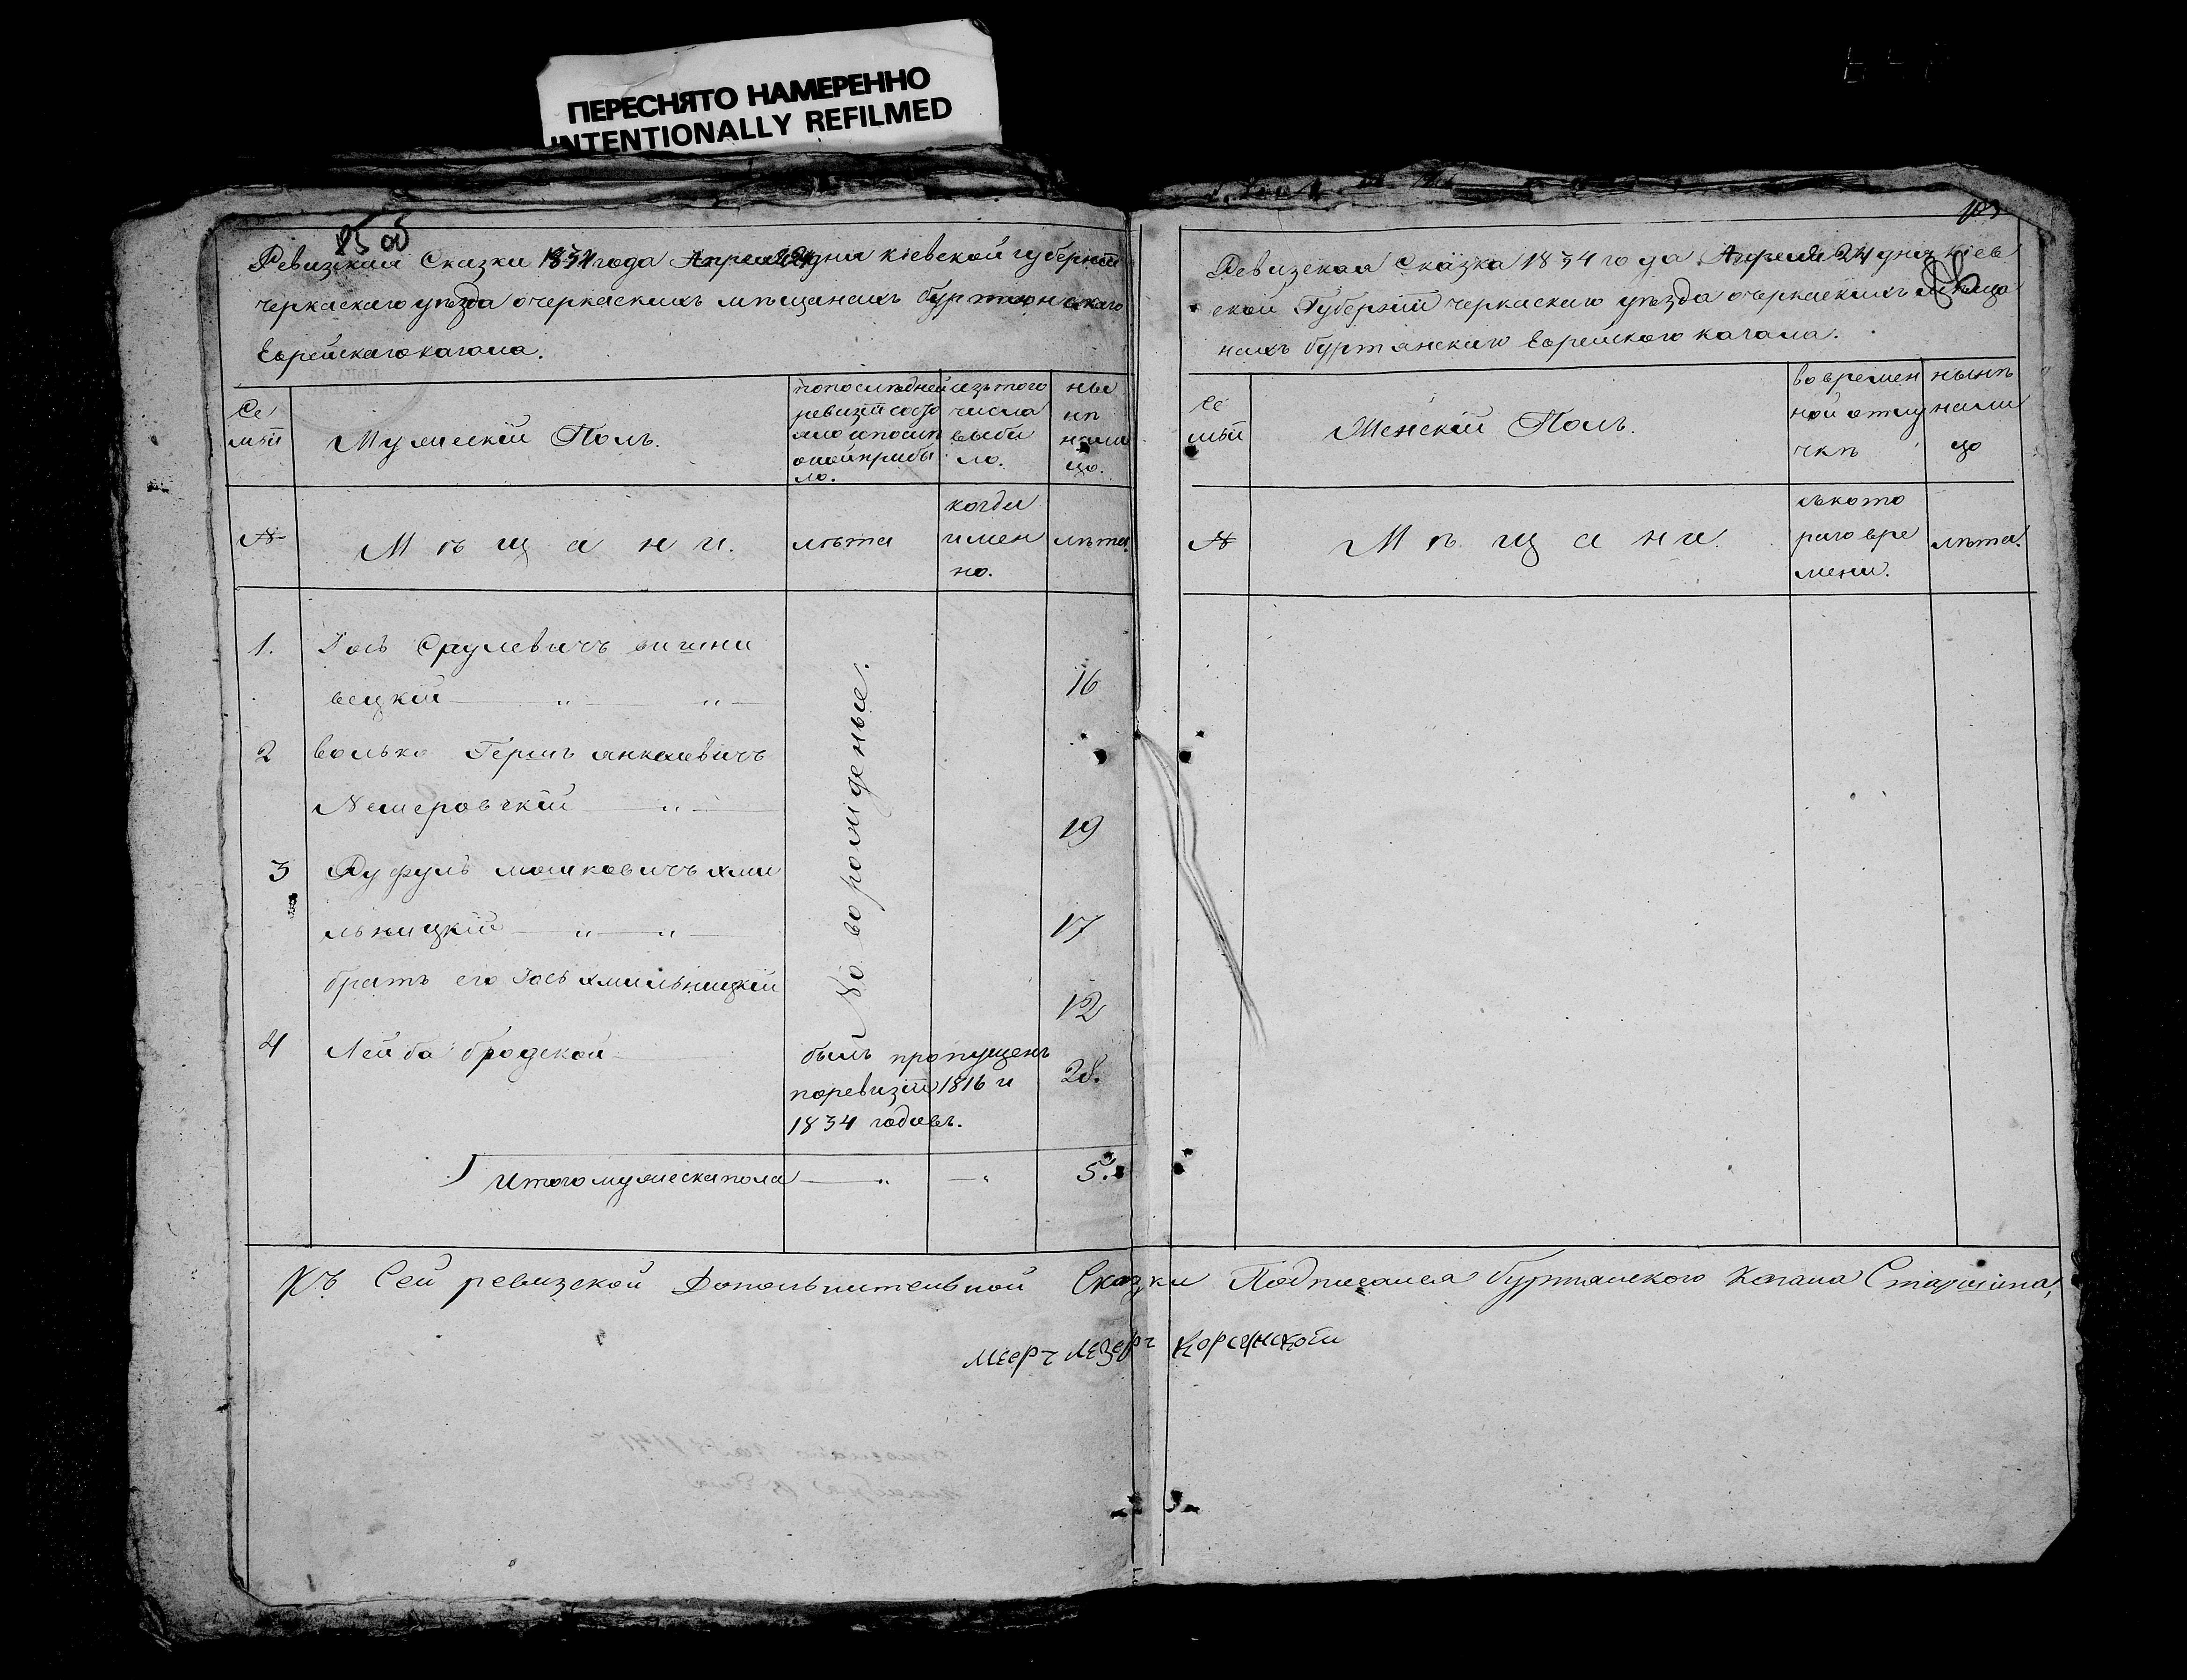 ПЕРЕСНЯТО НАМЕРЕННО
INTENTIONALLY REFILMED
85 об
Ревизская Сказка 1834 года Апреля 24 дня кіевской губерніи
черкаскаго уѣзда очеркаскихъ мѣщанахъ буртянскаго
Еврейскаго кагала.
Се
мьи
Мужескій Полъ.
попослѣдней
ревизіи состо
яло ипослѣ
оной прибы
ло.
изътого
числа
выбы
ло.
ны
нѣ
нали
цо.
№
Мѣщани.
лѣта
когда
имен
но.
лѣта.
1. Іось Срулевичъ вишни
вецкій 16
2 волько Гершъ янкелевичъ
Немеровскій 19
3 мошковичъ хми
льницкій 17
братъ его Іось хмильницкій 12
Новорожденые.
4 Лейба бродской 28.
былъ пропущенъ
поревизіи 1816 и
1834 годовъ.
Итого мужеска пола 5.
Ревизская Сказка 1834 года Апреля 24 дня Кіев
ской Губерніи черкаскаго уѣзда очеркаскихъ мѣща
нахъ буртянскаго Еврейского кагала.
Се
мьи
Женскій Полъ.
вовремен
ной отлу
чкѣ
нынѣ
нали
цо
№
Мѣщани.
съкото
раго вре
мени.
лѣта.
Къ Сей ревизской Допольнительной Сказки Подписался буртянского Кагала Старшина,
мееръ лезеръ Корсунской